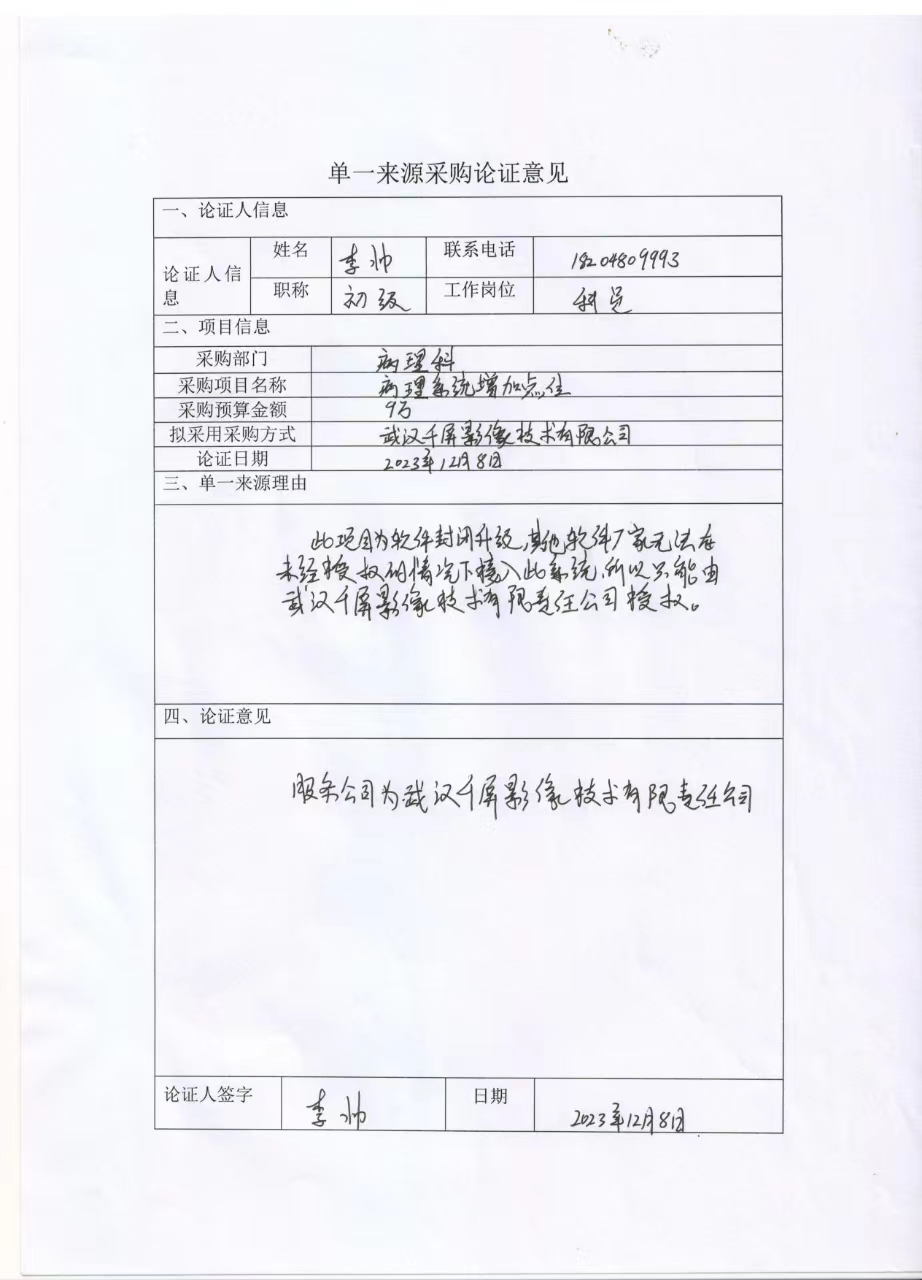 单一来源采购论证意见
一、论证人信息
论证人信息
姓名 李帅 联系电话 18204809993
职称 初级 工作岗位 科员
二、项目信息
采购部门 病理科
采购项目名称 病理系统增加点位
采购预算金额 9万
拟采用采购方式 武汉千屏影像技术有限公司
论证日期 2023年12月8日
三、单一来源理由
此项目为软件封闭升级,其他软件厂家无法在
未经授权的情况下接入此系统,所以只能由
武汉千屏影像技术有限责任公司授权。
四、论证意见
服务公司为武汉千屏影像技术有限责任公司
论证人签字 李帅 日期 2023年12月8日